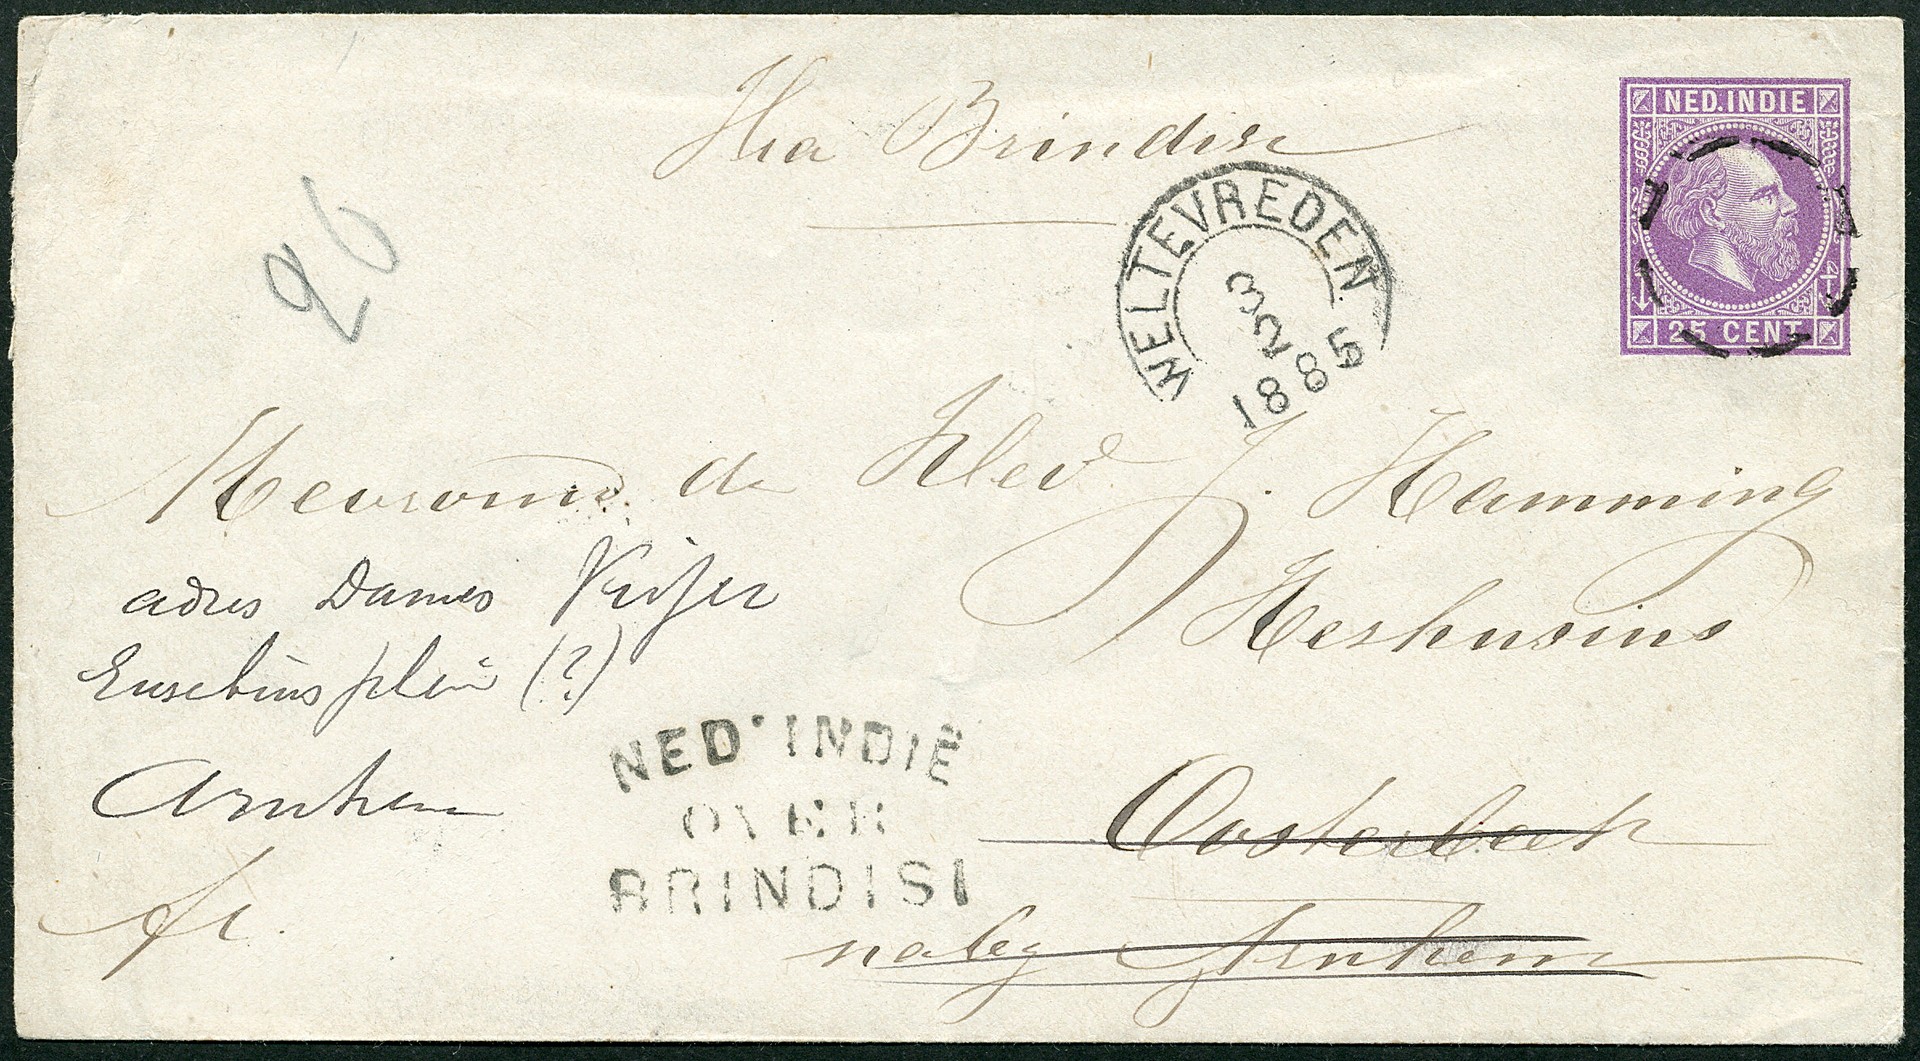 Via Brindisi
NED.INDIE
25 CENT
WELTEVREDEN
3
2
1885
26
Mevrouw de Wed J. Hamming
Heshusius
adres Dames Krijer
Eusebius plein (?)
Arnhem
NED. INDIË
OVER
BRINDISI
Oosterbeek
nabij Arnhem
fr.